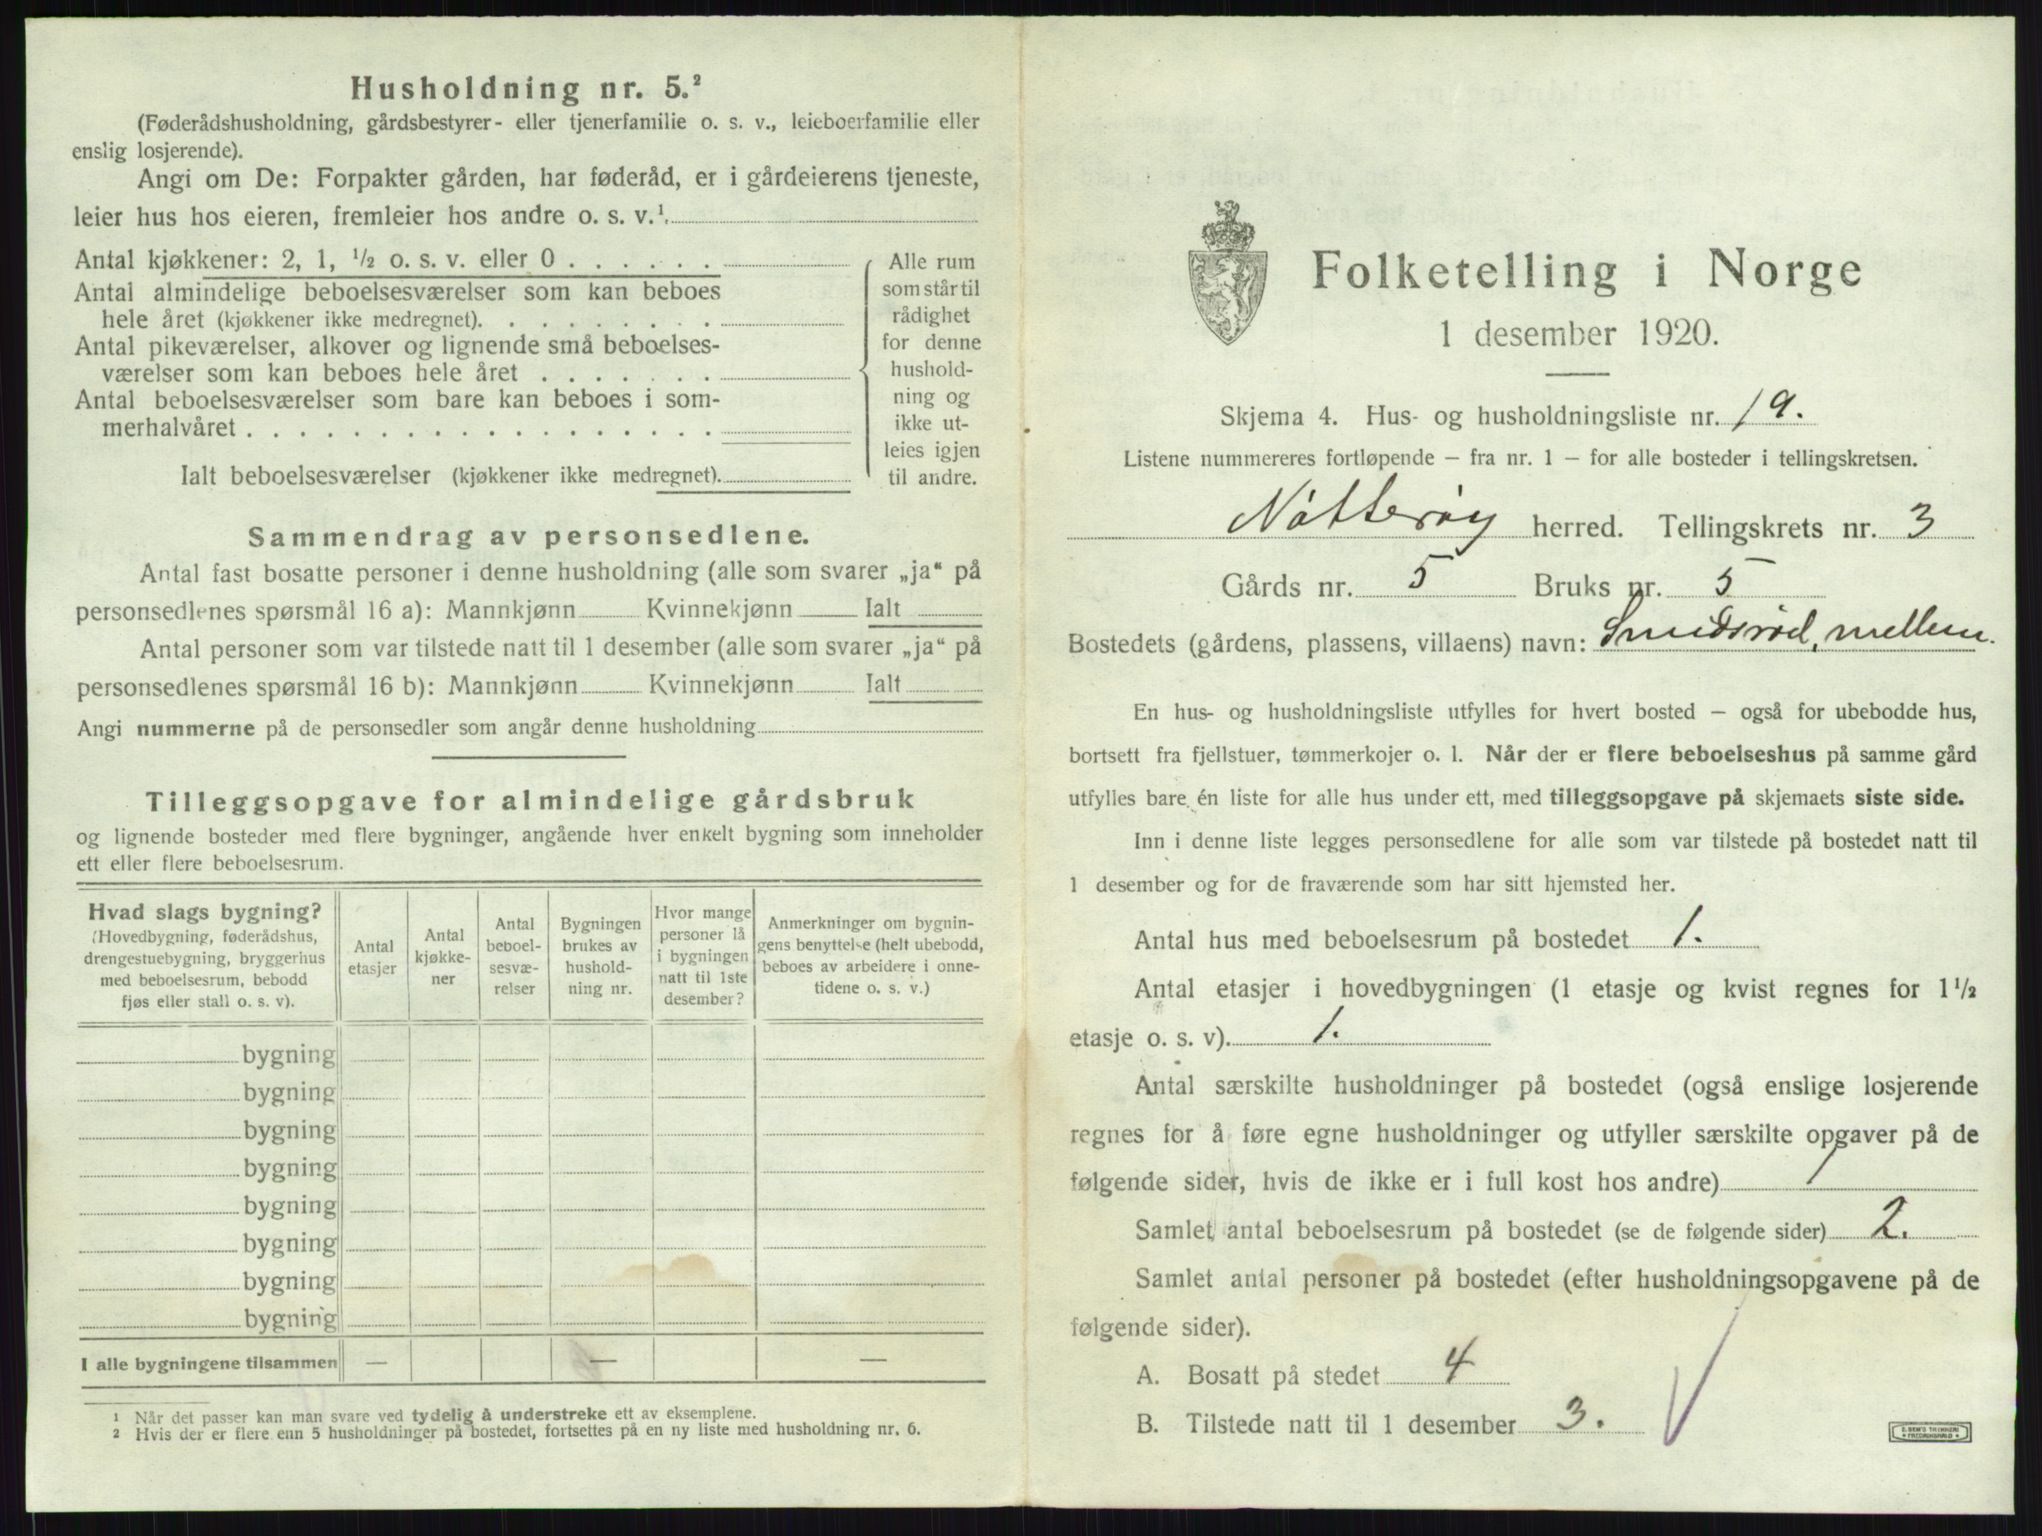 Husholdning nr. 5.²
(Føderådshusholdning, gårdsbestyrer- eller tjenerfamilie o. s. v., leieboerfamilie eller
enslig losjerende).
Angi om De: Forpakter gården, har føderåd, er i gårdeierens tjeneste,
leier hus hos eieren, fremleier hos andre o. s. v.¹.
Antal kjøkkener: 2, 1, ½ o. s. v. eller 0 . . . . . .
Antal almindelige beboelsesværelser som kan beboes
hele året (kjøkkener ikke medregnet). . . . . . . . .
Antal pikeværelser, alkover og lignende små beboelses-
værelser som kan beboes hele året . . . . . . .
Antal beboelsesværelser som bare kan beboes i som-
merhalvåret . . . . . . . . . . . . . . . . . .
Ialt beboelsesværelser (kjøkkener ikke medregnet).
Alle rum
som står til
rådighet
for denne
hushold-
ning og
ikke ut-
leies igjen
til andre.
Sammendrag av personsedlene.
Antal fast bosatte personer i denne husholdning (alle som svarer „ja“ på
personsedlenes spørsmål 16 a): Mannkjønn Kvinnekjønn Ialt
Antal personer som var tilstede natt til 1 desember (alle som svarer „ja“ på
personsedlenes spørsmål 16 b): Mannkjønn Kvinnekjønn Ialt
Angi nummerne på de personsedler som angår denne husholdning
Tilleggsopgave for almindelige gårdsbruk
og lignende bosteder med flere bygninger, angående hver enkelt bygning som inneholder
ett eller flere beboelsesrum.
Hvad slags bygning?
(Hovedbygning, føderådshus,
drengestuebygning, bryggerhus
med beboelsesrum, bebodd
fjøs eller stall o. s. v).
Antal
etasjer
Antal
kjøkke-
ner
Antal
beboel-
sesvæ-
relser
Bygningen
brukes av
hushold-
ning nr.
Hvor mange
personer lå
i bygningen
natt til 1ste
desember?
Anmerkninger om bygnin-
gens benyttelse (helt ubebodd,
beboes av arbeidere i onne-
tidene o. s. v.)
bygning
bygning
bygning
bygning
bygning
bygning
bygning
bygning
I alle bygningene tilsammen — — —
¹ Når det passer kan man svare ved tydelig å understreke ett av eksemplene.
² Hvis der er flere enn 5 husholdninger på bostedet, fortsettes på en ny liste med husholdning nr. 6.
Folketelling i Norge
1 desember 1920.
Skjema 4. Hus- og husholdningsliste nr. 19.
Listene nummereres fortløpende – fra nr. 1 – for alle bosteder i tellingskretsen.
Nøtterøy herred. Tellingskrets nr. 3
Gårds nr. 5 Bruks nr. 5
Bostedets (gårdens, plassens, villaens) navn: Smidsrød, mellem.
En hus- og husholdningsliste utfylles for hvert bosted – også for ubebodde hus,
bortsett fra fjellstuer, tømmerkojer o. l. Når der er flere beboelseshus på samme gård
utfylles bare én liste for alle hus under ett, med tilleggsopgave på skjemaets siste side.
Inn i denne liste legges personsedlene for alle som var tilstede på bostedet natt til
1 desember og for de fraværende som har sitt hjemsted her.
Antal hus med beboelsesrum på bostedet 1.
Antal etasjer i hovedbygningen (1 etasje og kvist regnes for 1½
etasje o. s. v). 1.
Antal særskilte husholdninger på bostedet (også enslige losjerende
regnes for å føre egne husholdninger og utfyller særskilte opgaver på de
følgende sider, hvis de ikke er i full kost hos andre) 1
Samlet antal beboelsesrum på bostedet (se de følgende sider) 2.
Samlet antal personer på bostedet (efter husholdningsopgavene på de
følgende sider).
A. Bosatt på stedet 4
B. Tilstede natt til 1 desember 3.